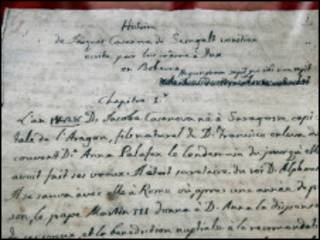 Histoire
de Jacques Casanova de Seingalt venitien
ecrite par lui même à Dux
en Boheme
Nequicquam sapit qui sibi non sapit
Chapitre I
L'an 1428 D. Jacobe Casanova né à Saragosse capi
tale de l'Aragon, fils naturel de D. Francisco enleva du
couvent D. Anna Palafox le lendemain du jour qu'elle
avoit fait ses vœux. Il etoit secretaire du roi D. Alphonse
Il se sauva avec elle à Rome où après une année de pri
son, le pape Martin III donna à D. Anna la dispense
de ses vœux, et la benediction nuptiale à la recommandat